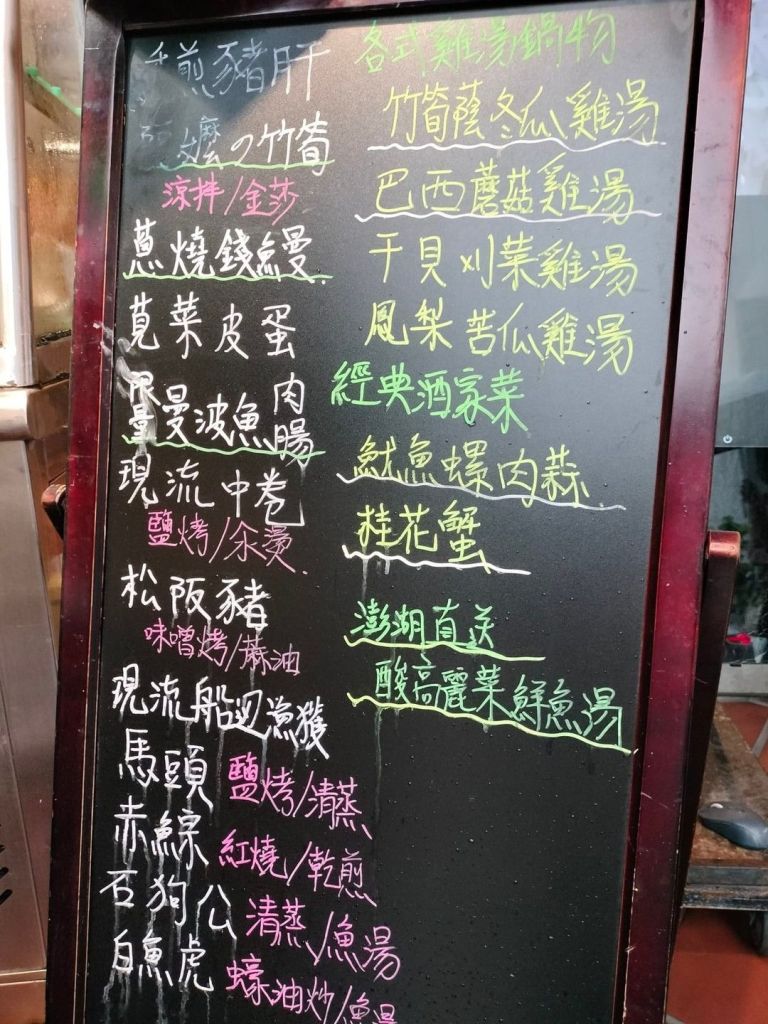 煎豬肝
嬤の竹筍
涼拌/金莎
蔥燒錢鰻
莧菜皮蛋
限量曼波魚肉腸
現流中卷
鹽烤/汆燙
松阪豬
味噌烤/麻油
現流船边漁獲
馬頭 鹽烤/清蒸
赤鯮 紅燒/乾煎
石狗公 清蒸/魚湯
白魚虎 蠔油炒/魚湯
各式雞湯鍋物
竹筍蔭冬瓜雞湯
巴西蘑菇雞湯
干貝刈菜雞湯
鳳梨苦瓜雞湯
經典酒家菜
魷魚螺肉蒜
桂花蟹
澎湖直送
酸高麗菜鮮魚湯